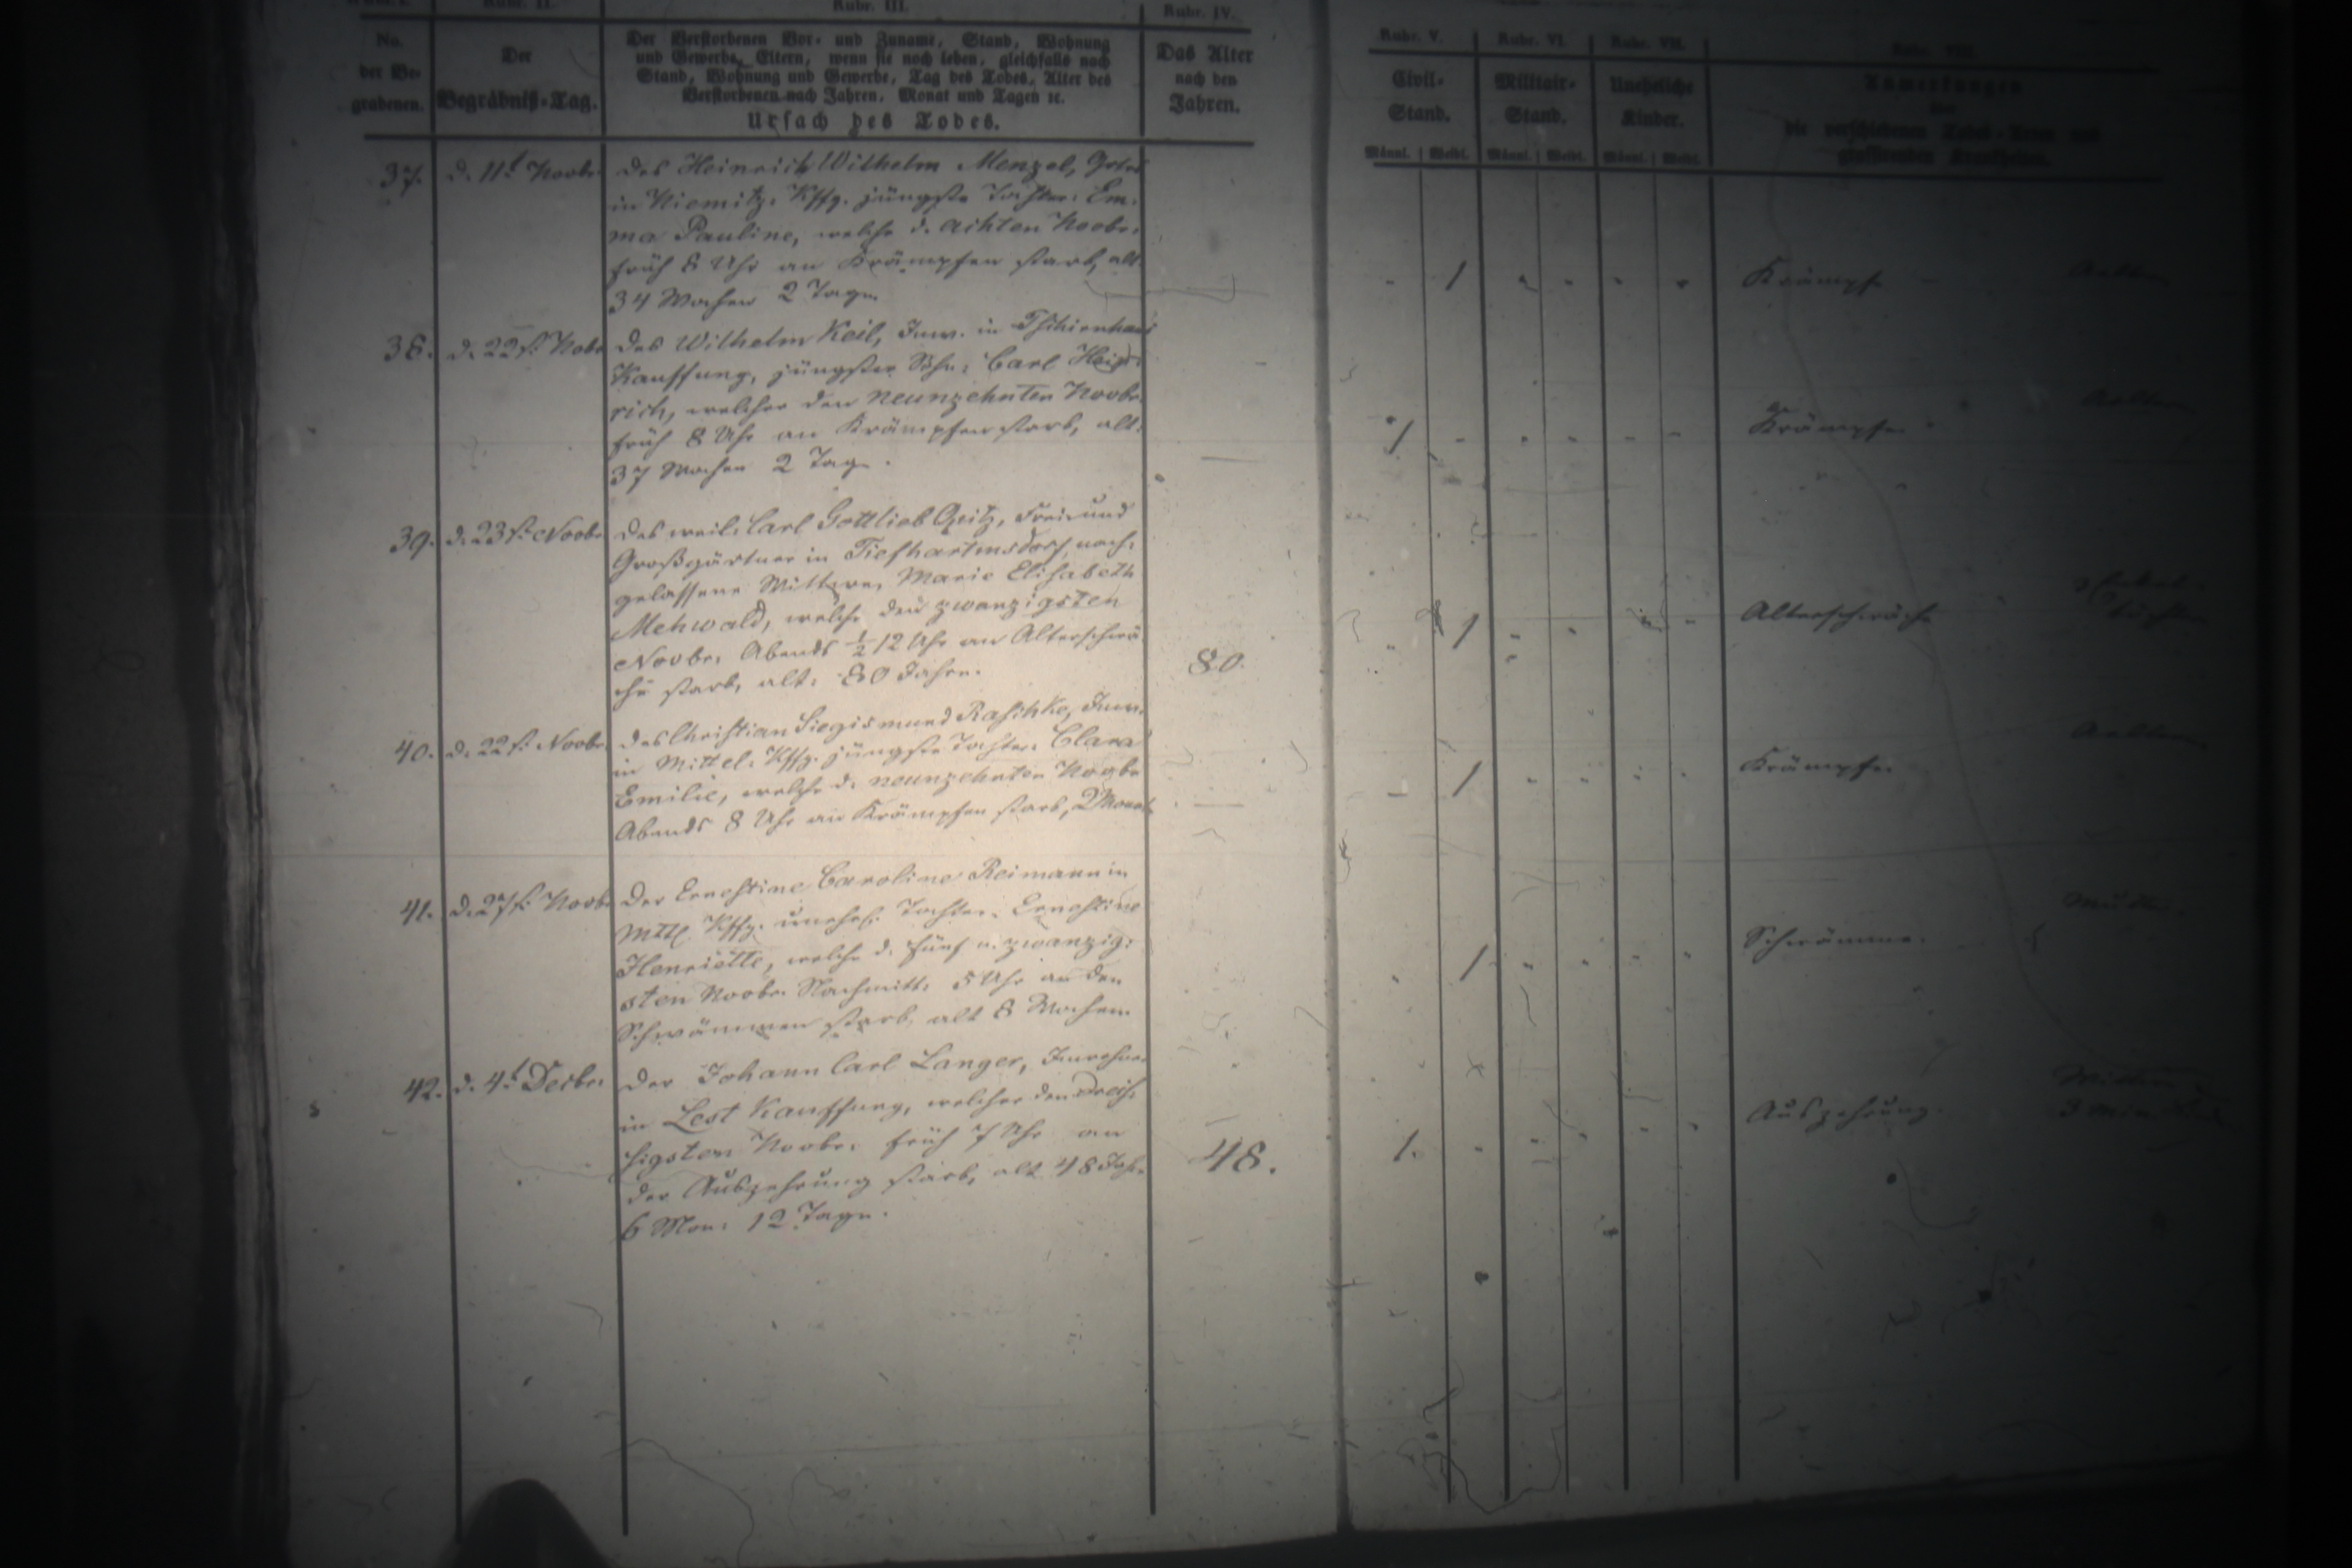 Rubr. II.
Rubr. III.
Rubr. IV.
Rubr. V.
Rubr. VI.
Rubr. VII.
No. der Be- grabenen.
Der Begräbniß-Tag.
Der Verstorbenen Vor- und Zuname, Stand, Wohnung
und Gewerbe, Eltern, wenn sie noch leben, gleichfalls nach
Stand, Wohnung und Gewerbe, Tag des Todes, Alter des
Verstorbenen nach Jahren, Monat und Tagen ꝛc.
Ursach des Todes.
Das Alter nach den Jahren.
Civil- Stand.
Militair- Stand.
Uneheliche Kinder.
Anmerkungen
über
die verschiedenen Todes-Arten und
grassirenden Krankheiten.
Männl. Weibl. Männl. Weibl. Männl. Weibl.
37. d. 11t Novbr. Des Heinrich Wilhelm Menzel,
in Niemitz. Kffg. jüngste Tochter: Em-
ma Pauline, welche d. achten Novbr.
früh 8 Uhr an Krämpfen starb, alt
34 Wochen 2 Tage.
1 Krämpfe
38. d. 22st. Nobr Des Wilhelm Keil, Inw. in Tschirnhaus
Kauffung, jüngster Sohn: Carl Hein-
rich, welcher den neunzehnten Novbr.
früh 8 Uhr an Krämpfen starb, alt:
37 Wochen 2 Tage.
1 Krämpfe
39. d. 23st. Novbr. Des weil. Carl Gottlieb Opitz, Frei- und
Großgärtner in Tiefhartmsdorf, nach-
gelassene Wittwe, Marie Elisabeth
Mehwald, welche den zwanzigsten
Novbr. Abends ½12 Uhr an Altersschwä-
che starb, alt: 80 Jahre.
80. 1 Altersschwäche
40. d. 22st. Novbr. Des Christian Siegismund Raschke, Inw.
in Mittel. Kffg. jüngste Tochter: Clara
Emilie, welche d. neunzehnten Novbr
Abends 8 Uhr an Krämpfen starb, 2 Monat
1 Krämpfe.
41. d. 27st. Novb. Der Ernestine Caroline Reimann in
Mttl. Kffg. unehel. Tochter: Ernestine
Henriette, welche d. fünf u. zwanzig-
sten Novbr. Nachmitt. 5 Uhr an den
Schwämmen starb, alt 8 Wochen.
1 Schwämme. Mutter.
42. d. 4t Decbr. Der Johann Carl Langer, Inwohner
in Lest Kauffung, welcher den dreis-
sigsten Novbr. früh 7 Uhr an
der Auszehrung starb, alt 48 Jahr
6 Mon. 12 Tage.
48. 1. Auszehrung.